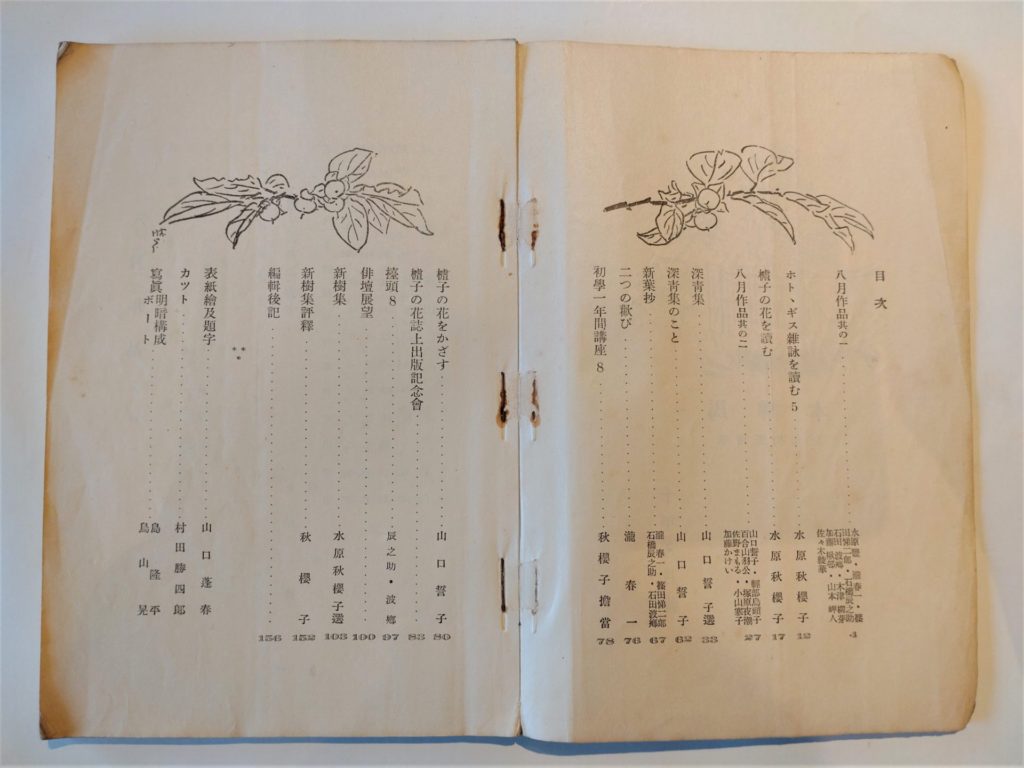 目次
八月作品其の一
永原聰・瀧春一・篠
田悌二郎・石橋辰之助
石田波郷・木津柳芽
加藤楸邨・山本岬人
佐々木綾華
4
ホトヽギス雜詠を讀む 5 水原秋櫻子 12
櫨子の花を讀む 水原秋櫻子 17
八月作品其の二
山口誓子・輕部烏頭子
百合山羽公・塚原夜潮
佐野まもる・小山寒子
加藤かけい
27
深青集 山口誓子選 33
深青集のこと 山口誓子 62
新葉抄
瀧春一・篠田悌二郎
石橋辰之助・石田波郷
67
二つの歡び 瀧春一 76
初學一年間講座 8 秋櫻子擔當 78
櫨子の花をかざす 山口誓子 80
櫨子の花誌上出版記念會 83
擡頭 8 辰之助・波郷 97
俳壇展望 100
新樹集 水原秋櫻子選 103
新樹集評釋 秋櫻子 152
編輯後記 156
表紙繪及題字 山口蓬春
カツト 村田勝四郎
寫眞 明暗構成 島隆平
ボート 鳥山晃